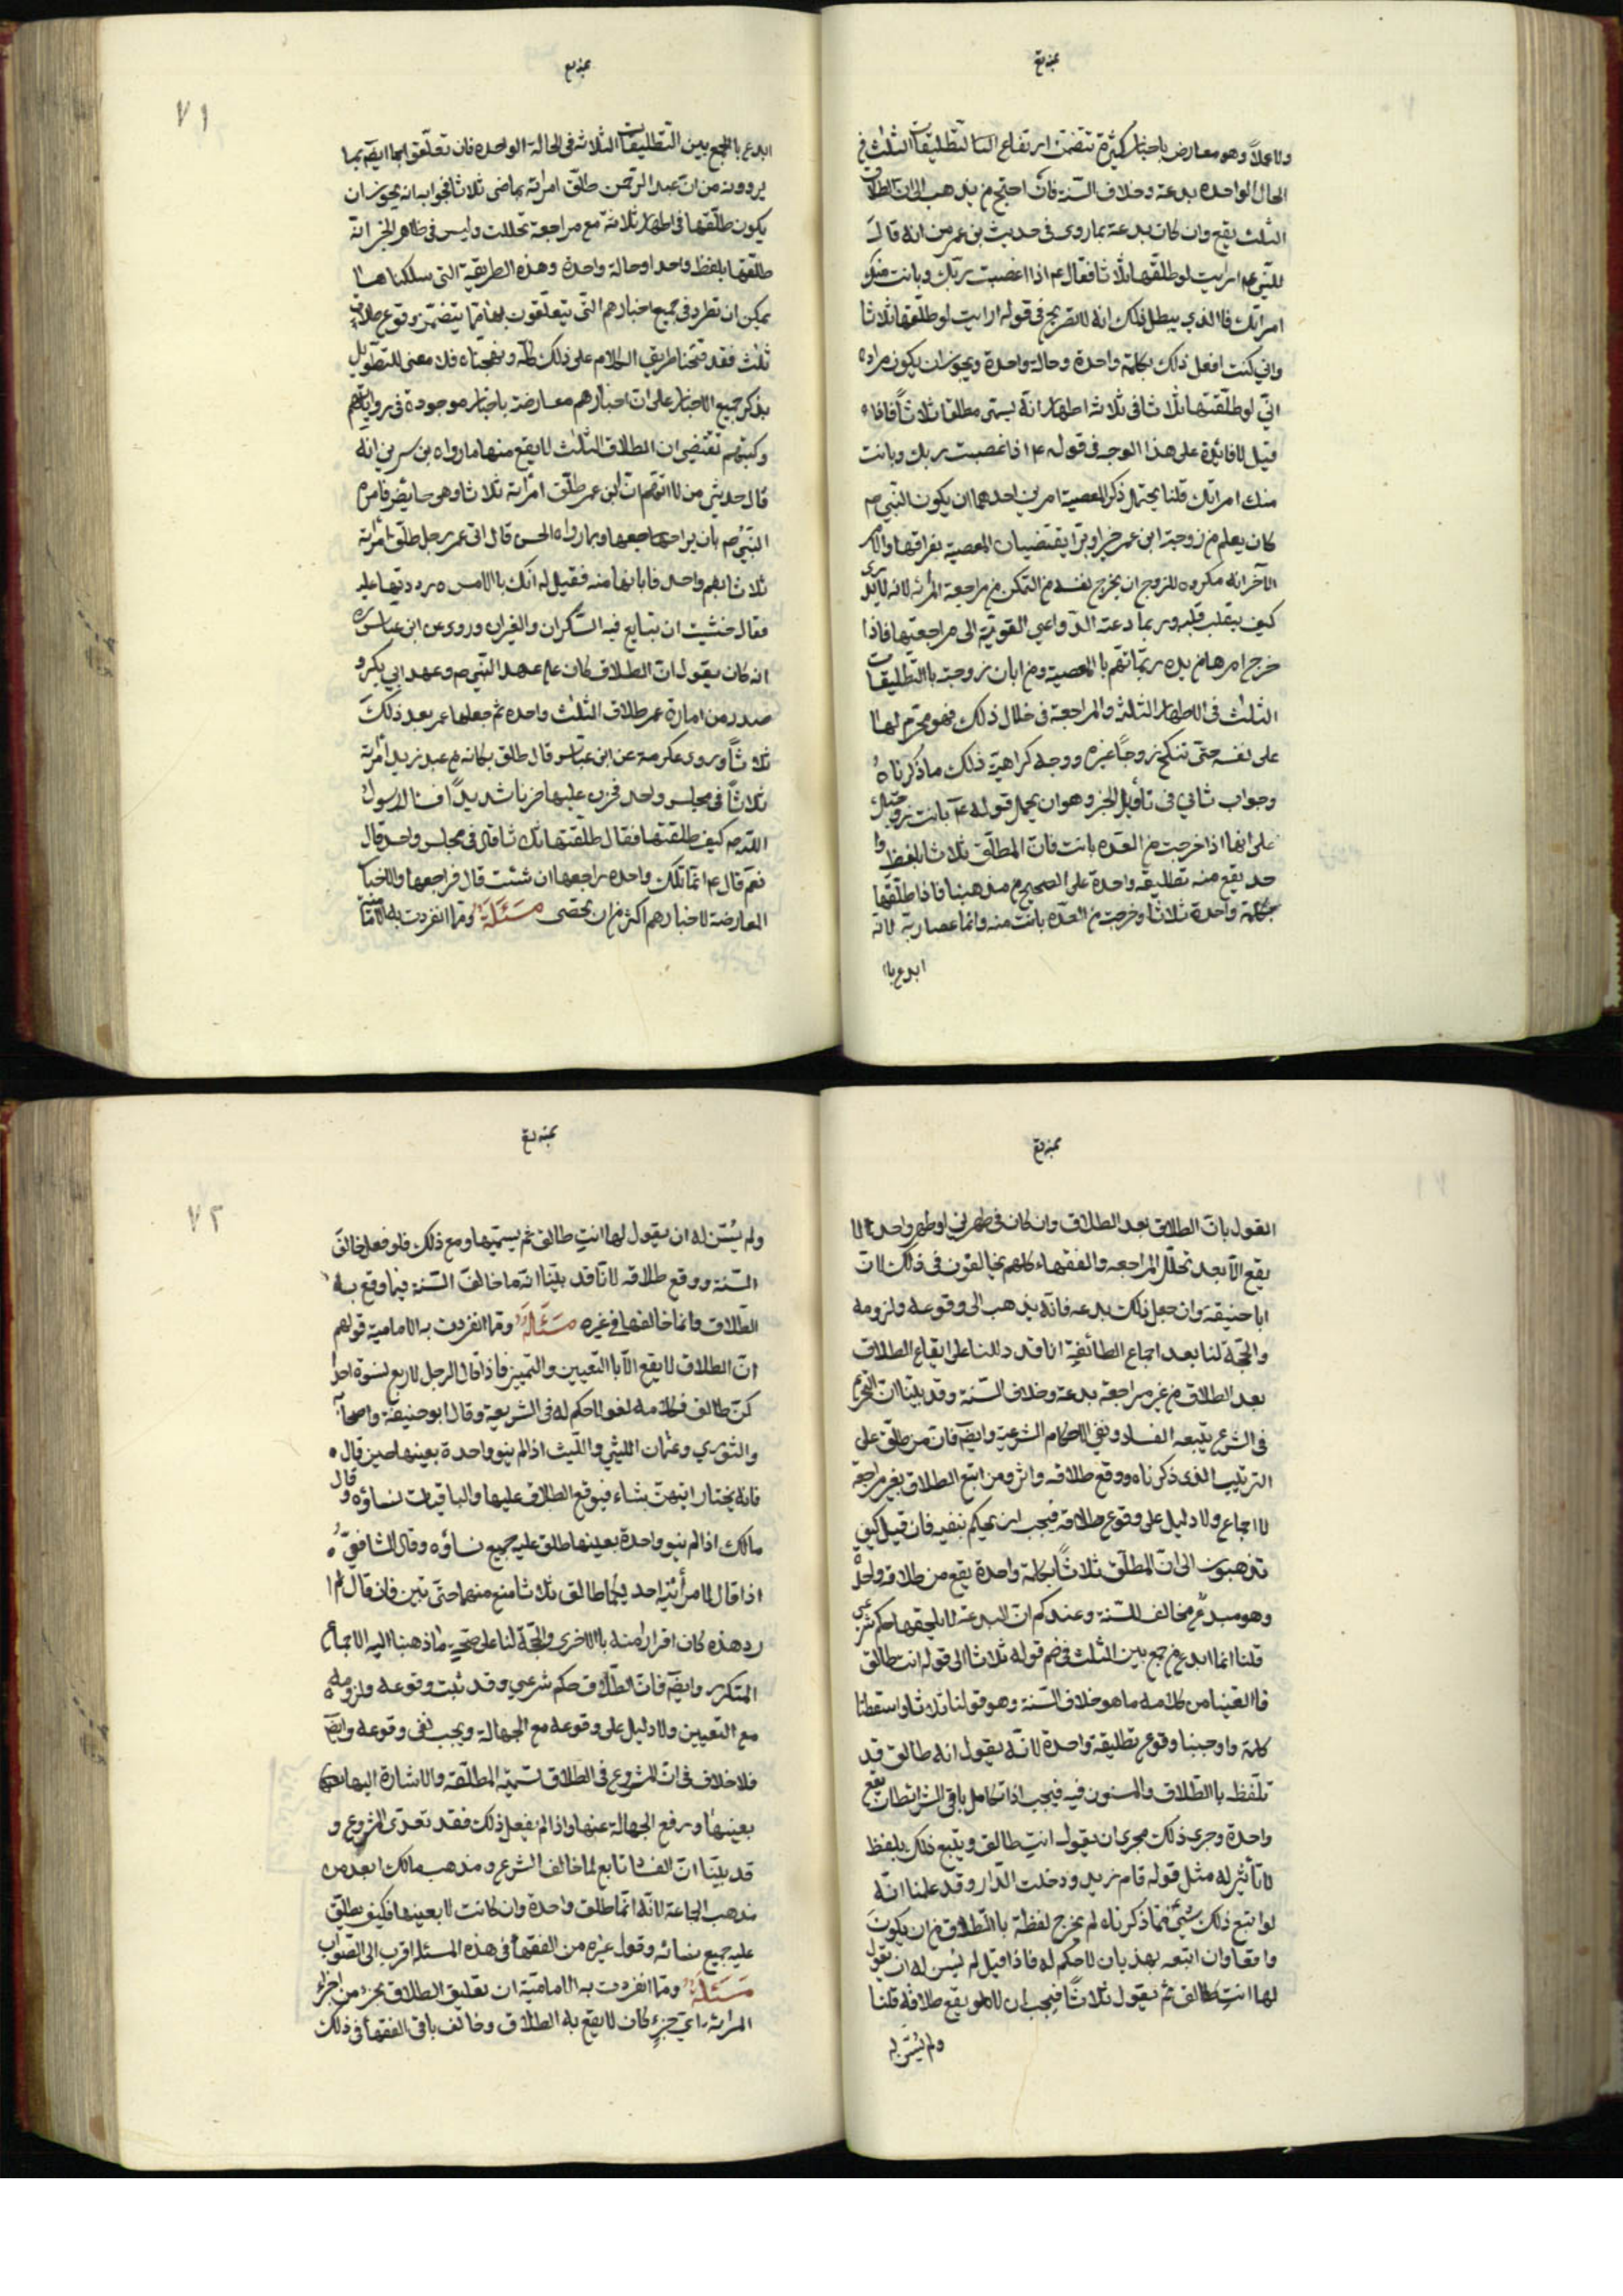 ولا عملاً وهو معارض باخبار كثيرة تتضمن ايقاع التطليقات الثلث في
الحال الواحده بدعة وخلاف السنة فان احتج من يذهب الى ان الطلاق
الثلث يقع وان كان بدعة بما روى في حديث بن عمر من انه قال
للنبي ع ارايت لو طلقتها ثلاثا فقال ع اذا اغصبت ربك وبانت منك
امراتك فالذي يبطل ذلك انه لا تصريح في قوله ارايت لو طلقتها ثلاثا
واني كنت افعل ذلك بكلمة واحدة وحالة واحدة ويجوز ان يكون مراده
اني لو طلقتها ثلاثا في ثلاث اطهار انه يسمى مطلقا ثلاثاً فاذا
قيل لا فائدة على هذا الوجه في قوله ع اذا غصبت ربك وبانت
منك امراتك قلنا يحتمل ذكر المعصية امرين احدهما ان يكون النبي ص
كان يعلم من زوجة ابن عمر خيرا وبرا يقتضيان المعصية بفراقها والامر
الآخر انه مكروه للزوج ان يخرج نفسه من التمكن من مراجعة المراة لانه لا يدرى
كيف ينقلب قلبه وربما دعته الدواعي القوية الى مراجعتها فاذا
خرج امرها من يده ربما تهم بالمعصية ومن ابان زوجته بالتطليقات
الثلث في الاطهار الثلثة والمراجعة في خلال ذلك فهو محرم لها
على نفسه حتى تنكح زوجاً غيره ووجه كراهية ذلك ما ذكرناه
وجواب ثاني في تاويل الخبر وهو ان يحمل قوله ع بانت زوجتك
على انها اذا خرجت من العده بانت فان المطلق ثلاثا بلفظ وا
حد يقع منه تطليقة واحدة على الصحيح من مذهبنا فاذا طلقها
بكلمة واحدة ثلاثا وخرجت من العدة بانت منه وانما عصا ربه لانه
ابدع با
٧١
ابدع بالجمع بين التطليقات الثلاثة في الحالة الواحده فان تعلقوا ايضا بما
يروونه من ان عبد الرحمن طلق امراته تماضي ثلاثا فجوابه انه يجوز ان
يكون طلقها في اطهار ثلاثة مع مراجعة تخللت وليس في ظاهر الخبر انه
طلقها بلفظ واحد او حالة واحدة وهذه الطريقة التي سلكناها
يمكن ان تطرد في جميع اخبارهم التي يتعلقون بها مما يتضمن وقوع طلاق
ثلاث فقد فتحنا طريق الكلام على ذلك كله ونهجناه فلا معنى للتطويل
بذكر جميع الاخبار على ان اخبارهم معارضة باخبار موجودة في رواياتهم
وكتبهم تقتضي ان الطلاق الثلث لا يقع منها ما رواه بن سرين انه
قال حدثني من لا اتهم ان ابن عمر طلق امراته ثلاثا وهي حايض فامره
النبي ص بان يراجعها وبما رواه الحسن قال اتى عمر برجل طلق امراته
ثلاثا بفم واحد فابانها منه فقيل له انك بالامس رددتها عليه
فقال خشيت ان يتايع فيه السكران والغيران وروى عن ابن عباس ره
انه كان يقول ان الطلاق كان على عهد النبي ص وعهد ابي بكر و
صدر من امارة عمر طلاق الثلث واحدة ثم جعلها عمر بعد ذلك
ثلاثاً وروى عكرمة عن ابن عباس قال طلق ركانة بن عبد يزيد امراته
ثلاثاً في مجلس واحد فحزن عليها حزنا شديداً فسال رسول
الله ص كيف طلقتها فقال طلقتها ثلاثا قال في مجلس واحد قال
نعم قال ع انما تلك واحدة راجعها ان شئت قال فراجعها والاخبا
المعارضة لاخبارهم اكثر من ان تحصى مسئلة ومما انفردت به الامامية
القول بان الطلاق بعد الطلاق وان كان في طهرين او طهر واحد لا
يقع الا بعد تخلل المراجعة والفقهاء كلهم يخالفون في ذلك لان
ابا حنيفة وان جعل ذلك بدعه فانه يذهب الى وقوعه ولزومه
والحجة لنا بعد اجماع الطائفة انا قد دللنا على ايقاع الطلاق
بعد الطلاق من غير مراجعة بدعة وخلاف السنة وقد بينا ان التحريم
في الشرع يتبعه الفساد ونفي الاحكام الشرعية وايضا فان من طلق على
الترتيب الذى ذكرناه ووقع طلاقه واثر ومن اتبع الطلاق بغير مراجعة
لا اجماع ولا دليل على وقوع طلاقه فيجب ان نحكم بنفيه فان قيل كيف
تذهبون الى ان المطلق ثلاثاً بكلمة واحدة يقع من طلاقه واحدة
وهو مبدع مخالف للسنة وعندكم ان البدعة لا يلحقها حكم شرعي
قلنا انما ابدع من جمع بين الثلث في ضم قوله ثلاثا الى قوله انت طالق
فالغينا من كلامه ما هو خلاف السنة وهو قولنا ثلاثا واسقطنا
كلمة واوجبنا وقوع تطليقة واحدة لانه يقول انه طالق قد
تلفظ بالطلاق والمسنون فيه فيجب اذا تكامل باقى الشرائط ان يقع
واحدة وجرى ذلك مجرى ان يقول انت طالق ويتبع ذلك بلفظ
لا تأثير له مثل قوله قام زيد ودخلت الدار وقد علمنا انه
لو اتبع ذلك بشئ مما ذكرناه لم يخرج لفظة بالطلاق من ان يكون
واقعا وان اتبعه بهذيان لا حكم له فاذا قيل لم يسن له ان يقول
لها انت طالق ثم يقول ثلاثاً فيجب ان لا يقع طلاقه قلنا
ولم يسن له
٧٢
ولم يسن له ان يقول لها انت طالق ثم يسميها ومع ذلك فلو فعل خالف
السنة ووقع طلاقه لانا قد بينا انه ما خالف السنة فيما وقع به
الطلاق وانما خالفها في غيره مسئلة ومما انفردت به الامامية قولهم
ان الطلاق لا يقع الا بالتعيين والتمييز فاذا قال الرجل لاربع نسوة احدا
كن طالق فكلامه لغو لا حكم له في الشريعة وقال ابو حنيفة واصحابه
والثوري وعثمان الليثي والليث اذا لم ينو واحدة بعينها حين قال
فانه يختار ايتهن شاء فيوقع الطلاق عليها والباقيات نساؤه وقال
مالك اذا لم ينو واحدة بعينها طلق عليه جميع نساؤه وقال الشافعي
اذا قال لامرأتيه احديكما طالق ثلاثا منع منهما حتى تبين فان قال لم ا
رد هذه كان اقرارا منه بالاخرى والحجة لنا على صحة ما ذهبنا اليه الاجماع
المتكرر وايضا فان الطلاق حكم شرعي وقد ثبت وقوعه ولزومه
مع التعيين ولا دليل على وقوعه مع الجهالة ويجب نفى وقوعه وايضا
فلا خلاف في ان المشروع في الطلاق تسمية المطلقة والاشارة اليها
بعينها ورفع الجهالة عنها واذا لم يفعل ذلك فقد تعدى المشروع و
قد بينا ان الفساد تابع لما خالف الشرع ومذهب مالك ابعد من
مذهب الجماعة لانه انما طلق واحدة وان كانت لا بعينها فكيف يطلق
عليه جميع نسائه وقول غيره من الفقهاء في هذه المسئلة اقرب الى الصواب
مسئلة ومما انفردت به الامامية ان تعليق الطلاق بجزء من اجزاء
المراة اي جزء كان لا يقع به الطلاق وخالف باقى الفقهاء في ذلك